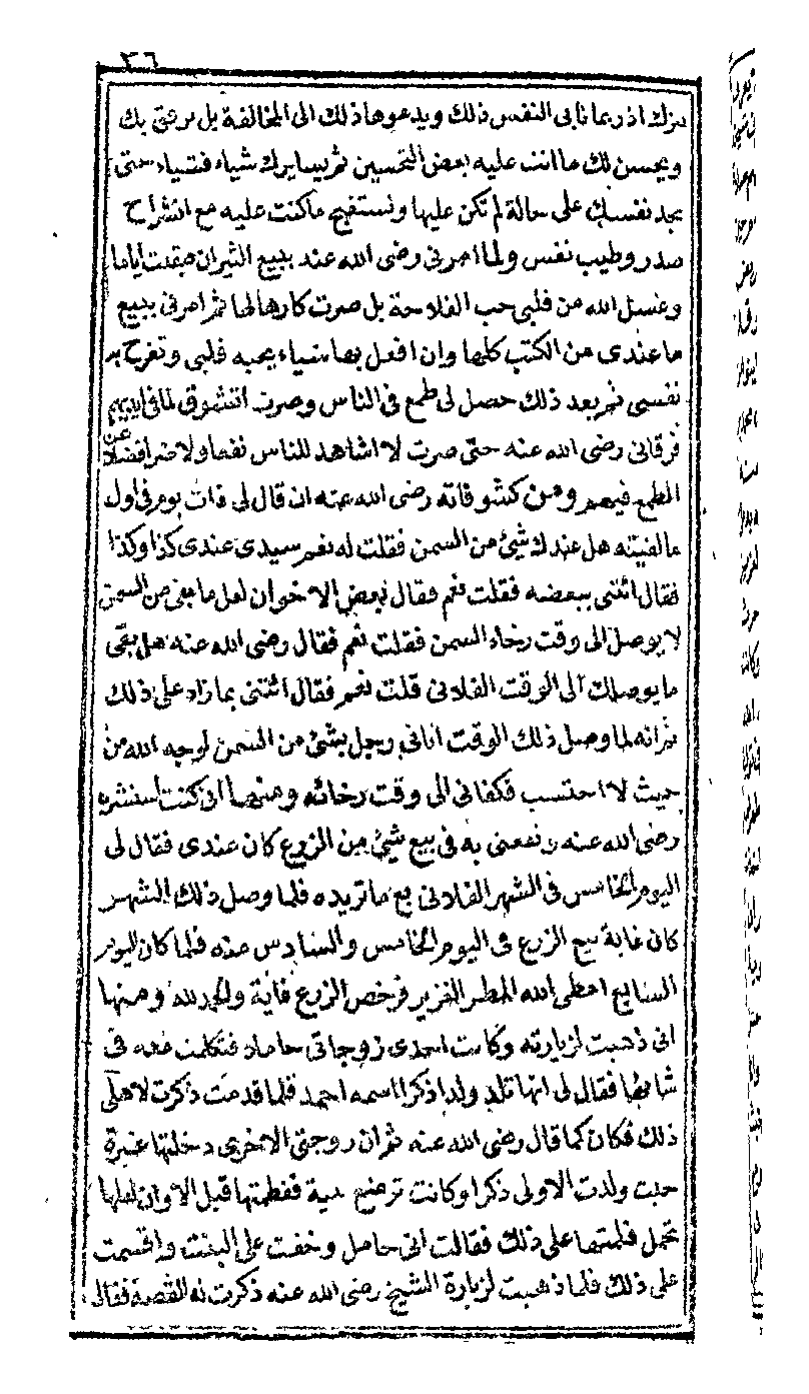 ٣٦
بترك اذ ربما تابى النفس ذلك ويدعوها ذلك الى المخالفة بل يرفق بك
ويحسن لك ما انت عليه بعض التحسين ثم يسايرك شياء فشياء حتى
تجد نفسك على حالة لم تكن عليها وتستقبح ما كنت عليه مع انشراح
صدر وطيب نفس ولما امرنى رضى الله عنه ببيع الثيران بقيت اياما
وغسل الله من قلبى حب الفلاحة بل صرت كارها لها ثم امرنى ببيع
ما عندى من الكتب كلها وان افعل بها شياء يحبه قلبى وتفرح به
نفسى ثم بعد ذلك حصل لى طمع فى الناس وصرت اتشوق لما فى ايديهم
فرقانى رضى الله عنه حتى صرت لا اشاهد للناس نفعا ولا ضرا فضلا عن
الطمع فيهم ومن كشوفاته رضى الله عنه ان قال لى ذات يوم فى اول
ما لقيته هل عندك شئ من السمن فقلت له نعم سيدى عندى كذا وكذا
فقال ائتنى ببعضه فقلت نعم فقال بعض الاخوان لعل ما بقى من السمن
لا يوصل الى وقت رخاء السمن فقلت نعم فقال رضى الله عنه هل بقى
ما يوصلك الى الوقت الفلانى قلت نعم فقال ائتنى بما زاد على ذلك
ثم انه لما وصل ذلك الوقت اتانى رجل بشئ من السمن لوجه الله من
حيث لا احتسب فكفانى الى وقت رخائه ومنها انى كنت استشره
رضى الله عنه ونفعنى به فى بيع شئ من الزرع كان عندى فقال لى
اليوم الخامس فى الشهر الفلانى بع ما تريده فلما وصل ذلك الشهر
كان غاية بيع الزرع فى اليوم الخامس والسادس منه فلما كان اليوم
السابع اعطى الله المطر الغزير فرخص الزرع غاية والحمد لله ومنها
انى ذهبت لزيارته وكانت احدى زوجاتى حاملا فتكلمت معه فى
شانها فقال لى انها تلد ولدا ذكرا اسمه احمد فلما قدمت ذكرت لاهلى
ذلك فكان كما قال رضى الله عنه ثم ان زوجتى الاخرى دخلتها غيرة
حيث ولدت الاولى ذكرا وكانت ترضع بنية ففطمتها قبل الاوان لعلها
تحمل فلمتها على ذلك فقالت انى حامل وخفت على البنت واقسمت
على ذلك فلما ذهبت لزيارة الشيخ رضى الله عنه ذكرت له القصة فقال